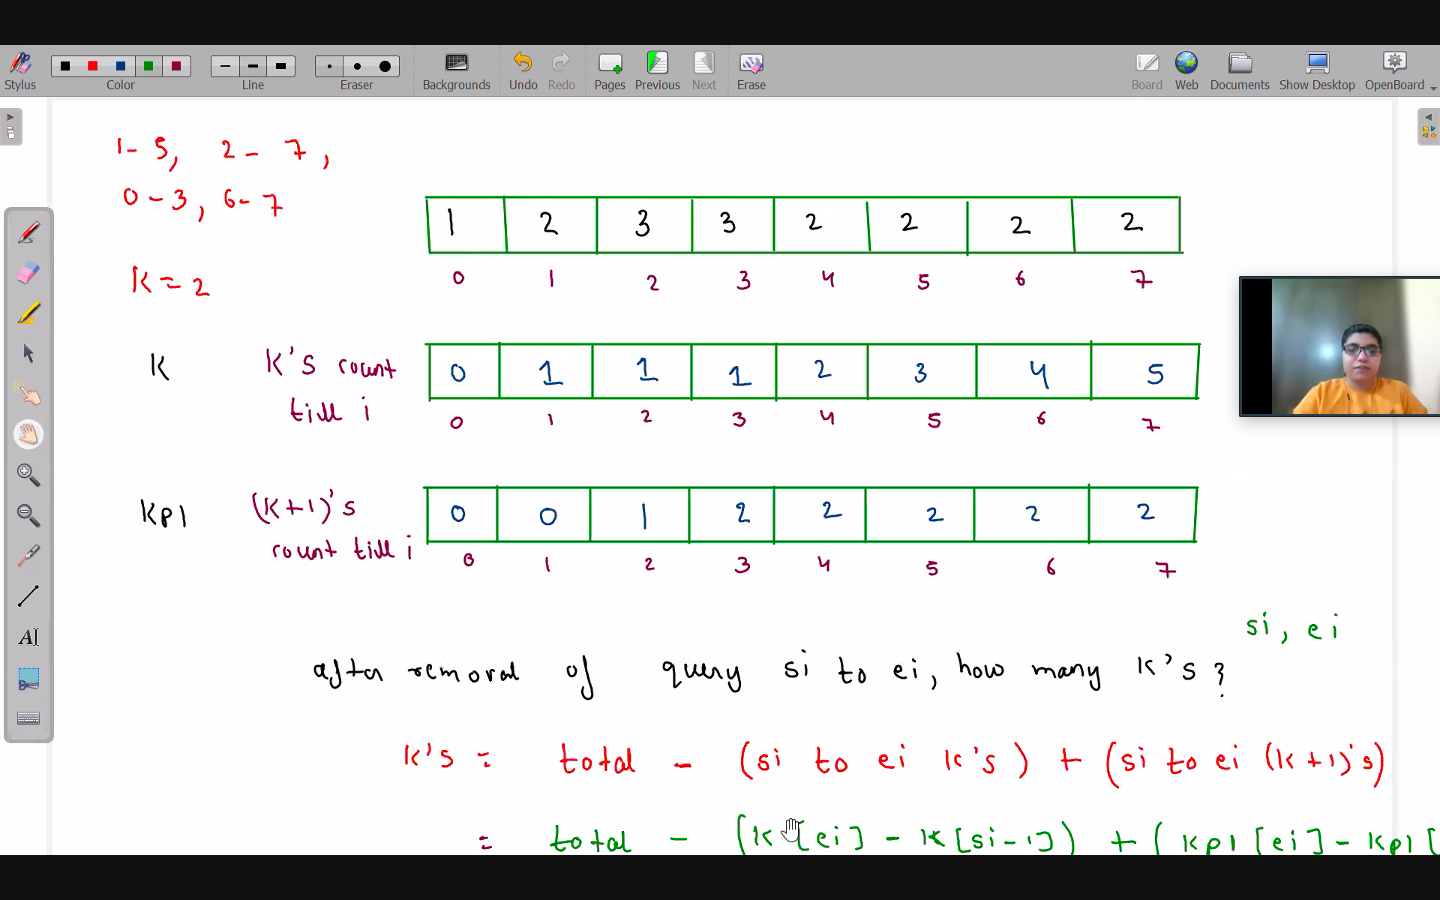 Stylus Color Line Eraser Backgrounds Undo Redo Pages Previous Next Erase Board Web Documents Show Desktop OpenBoard
1-5, 2-7,
0-3, 6-7
K=2
1 2 3 3 2 2 2 2
0 1 2 3 4 5 6 7
K K's count till i
0 1 1 1 2 3 4 5
0 1 2 3 4 5 6 7
Kp1 (K+1)'s count till i
0 0 1 2 2 2 2 2
0 1 2 3 4 5 6 7
si, ei
after removal of query si to ei, how many K's?
K's = total - (si to ei K's) + (si to ei (K+1)'s)
= total - (K[ei] - K[si-1]) + (Kp1[ei] - Kp1[
AI